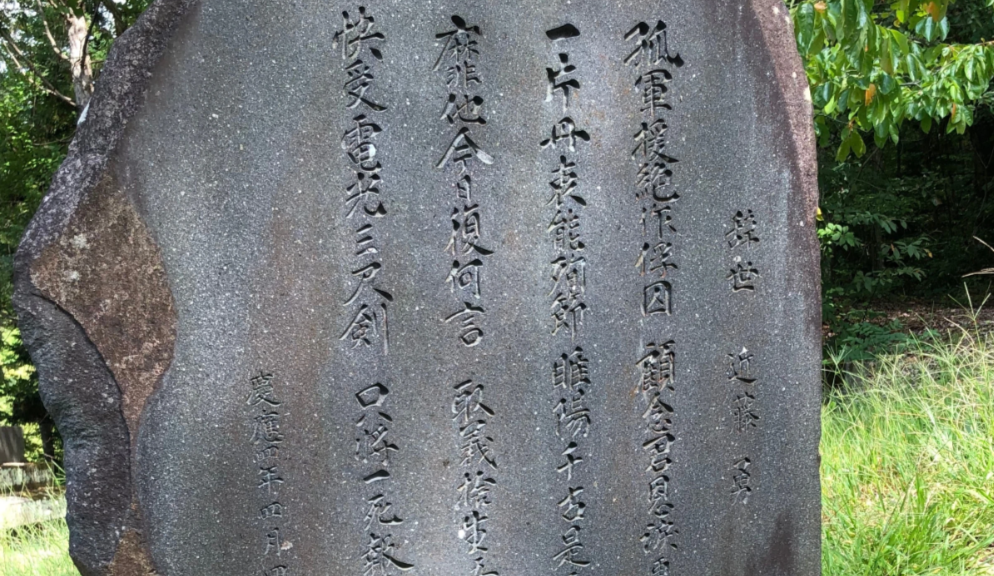 辞世 近藤勇
孤軍援絶作俘囚 顧念君恩涙
一片丹衷能殉節 睢陽千古是
靡他今日復何言 取義捨生
快受電光三尺剣 只将一死報
慶應四年四月